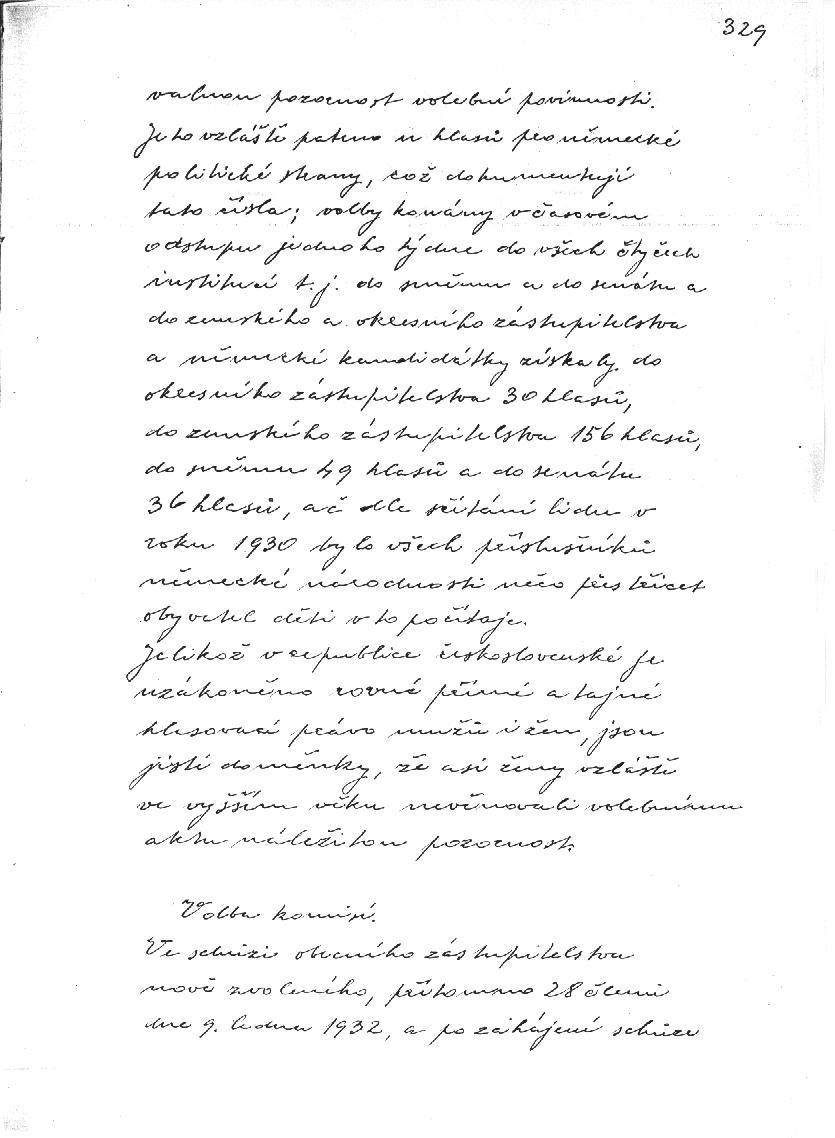 329
valnou pozornost volební povinnosti.
Je to vzláště patrno u hlasů pro německé
politické strany, což dokumentují
tato čísla; volby konány v časovém
odstupu jednoho týdne do všech čtyřech
institucí t. j. do sněmu a do senátu a
do zemského a okresního zástupitelstva
a německé kandidátky získaly do
okresního zástupitelstva 30 hlasů,
do zemského zástupitelstva 156 hlasů,
do sněmu 49 hlasů a do senátu
36 hlasů, ač dle sčítání lidu v
roku 1930 bylo všech příslušníků
německé národnosti něco přes třicet
obyvatel děti v to počítaje.
Jelikož v republice československé je
uzákoněno rovné přímé a tajné
hlasovací právo mužů i žen, jsou
jisté domněnky, že asi ženy vzláště
ve vyšším věku nevěnovali volebnímu
aktu náležitou pozornost.
Volba komisí.
Ve schůzi obecního zástupitelstva
nově zvoleného, přítomno 28 členů
dne 9. ledna 1932, a po zahájení schůze